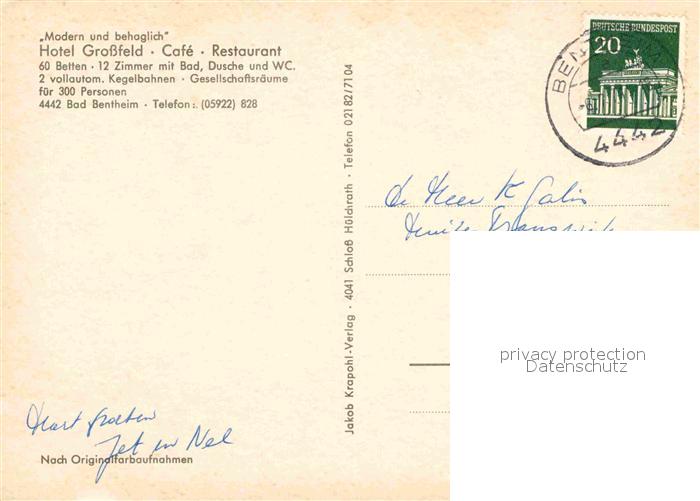 „Modern und behaglich"
Hotel Großfeld · Café · Restaurant
60 Betten · 12 Zimmer mit Bad, Dusche und WC.
2 vollautom. Kegelbahnen · Gesellschaftsräume
für 300 Personen
4442 Bad Bentheim · Telefon: (05922) 828
DEUTSCHE BUNDESPOST
20
BEN
4442
Jakob Krapohl-Verlag · 4041 Schloß Hülchrath · Telefon 02182/7104
de Heer K
privacy protection
Datenschutz
Hart groeten
Jet en Nel
Nach Originalfarbaufnahmen